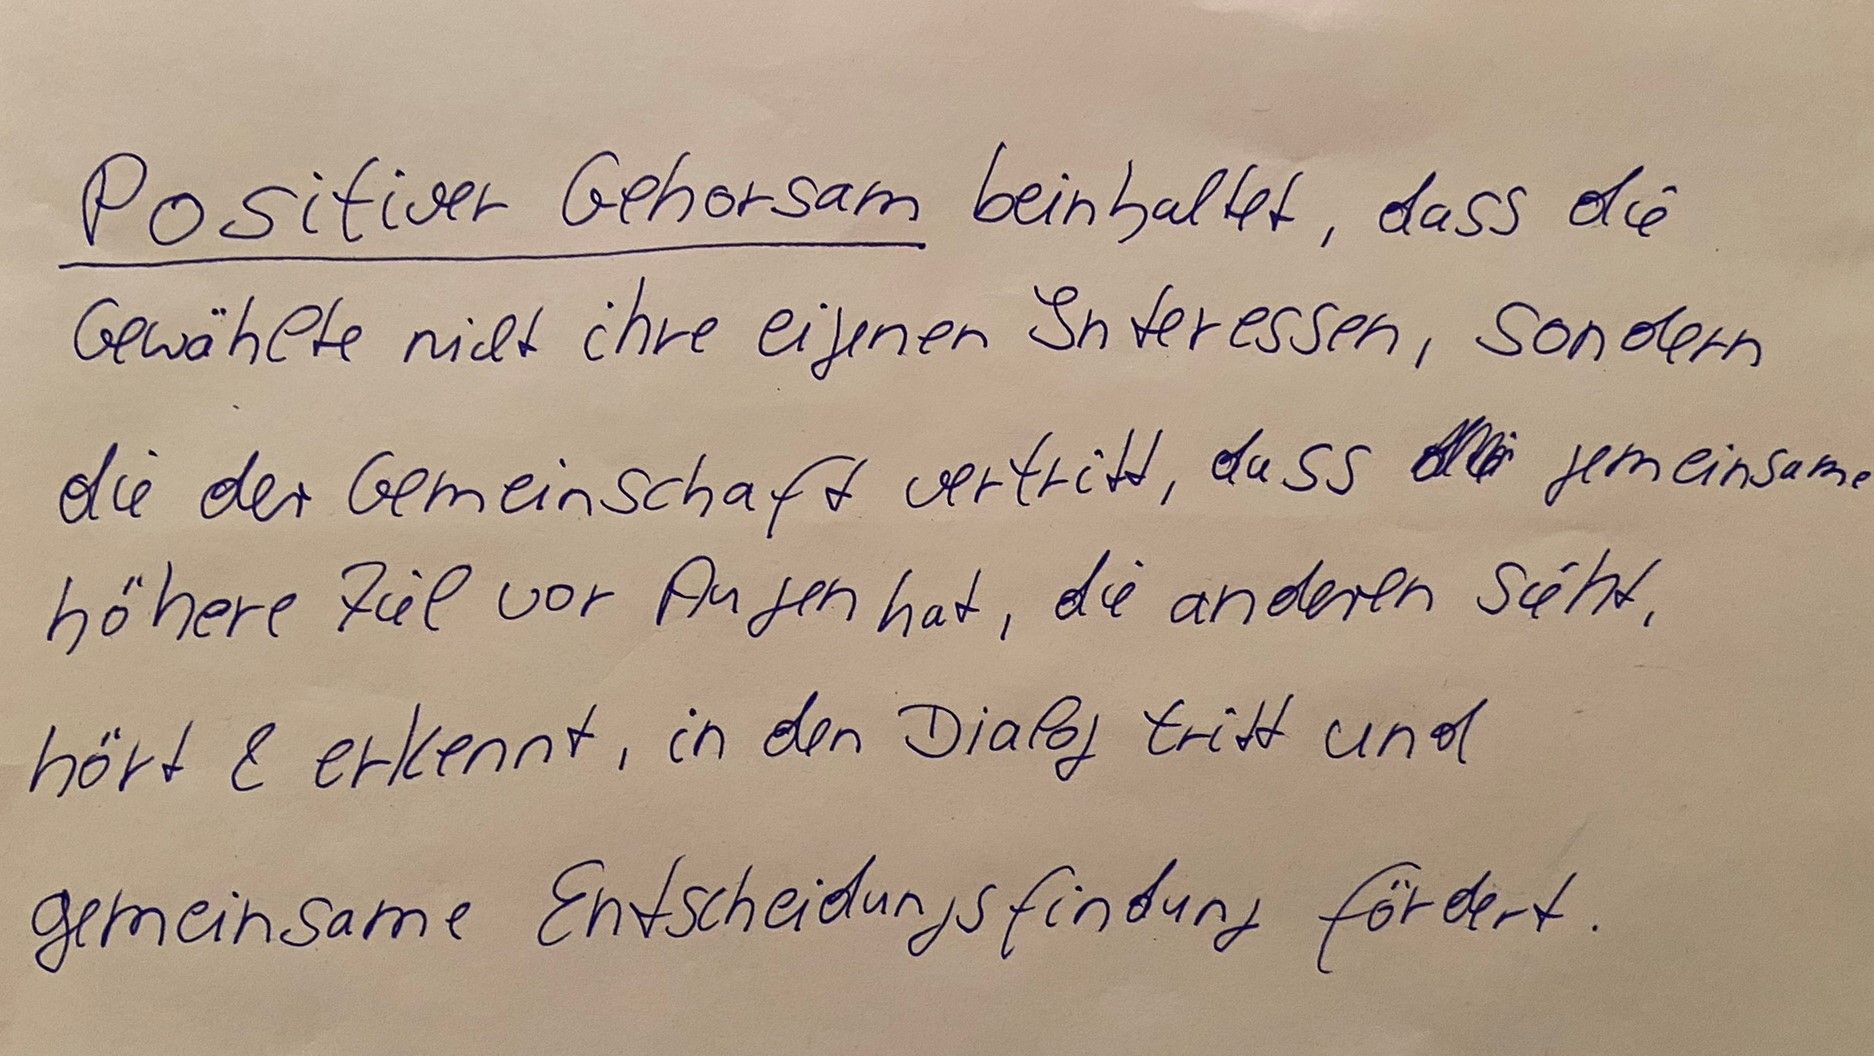 Positiver Gehorsam beinhaltet, dass die
Gewählte nicht ihre eigenen Interessen, sondern
die der Gemeinschaft vertritt, dass gemeinsame
höhere Ziel vor Augen hat, die anderen sieht,
hört & erkennt, in den Dialog tritt und
gemeinsame Entscheidungsfindung fördert.